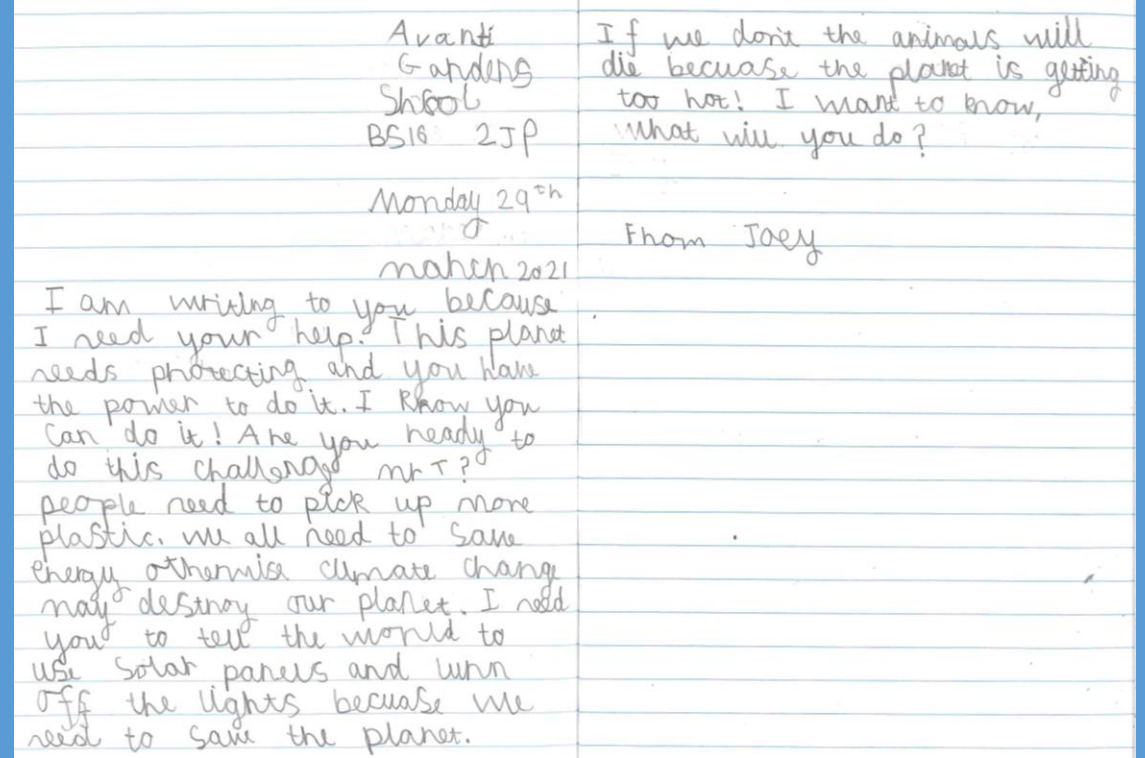 Avanti
Gardens
Shcool
BS16 2JP
Monday 29th
march 2021
I am writing to you because
I need your help. This planet
needs protecting and you have
the power to do it. I know you
can do it! Are you ready to
do this challenge mr T?
people need to pick up more
plastic. we all need to save
energy otherwise climate change
may destroy our planet. I need
you to tell the world to
use solar panels and turn
off the lights becuase we
need to save the planet.
If we don't the animals will
die becuase the planet is getting
too hot! I want to know,
what will you do?
From Joey